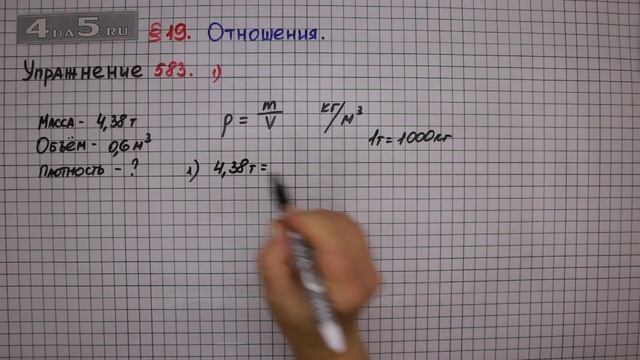 4DA5.RU
§ 19. Отношения.
Упражнение 583. 1)
Масса - 4,38 т
Объём - 0,6 м³
Плотность - ?
ρ = m/V
кг/м³
1т = 1000 кг
1) 4,38 т =